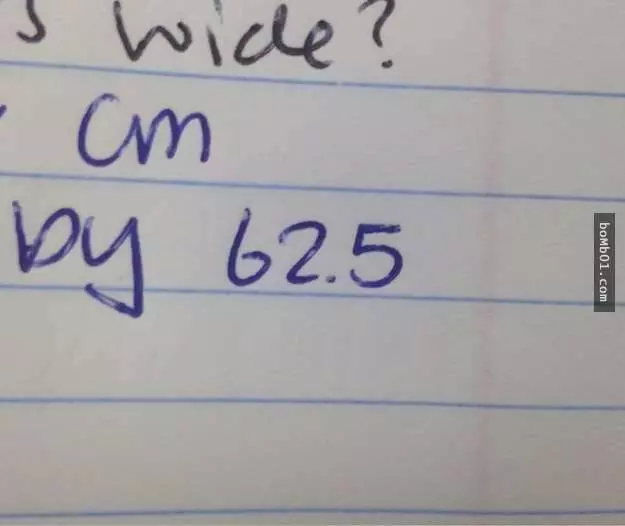 s wide?
cm
by 62.5
boMb01.com